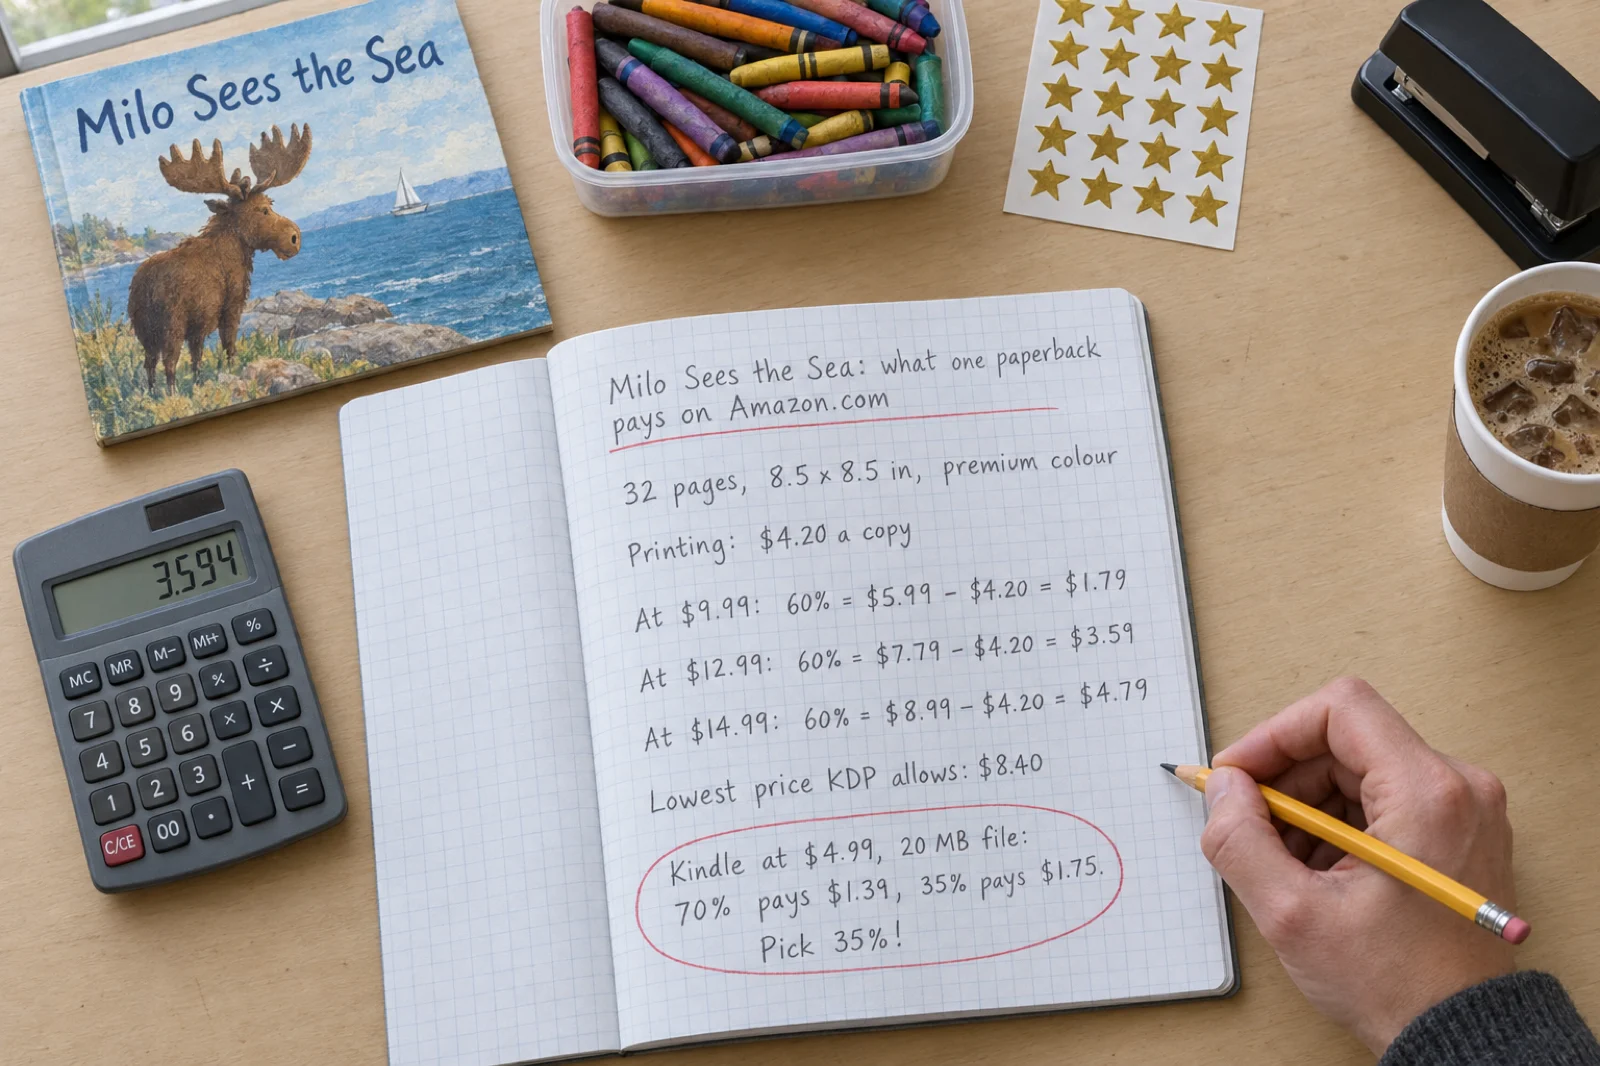 Milo Sees the Sea
Milo Sees the Sea: what one paperback
pays on Amazon.com
32 pages, 8.5 x 8.5 in, premium colour
Printing: $4.20 a copy
At $9.99: 60% = $5.99 - $4.20 = $1.79
At $12.99: 60% = $7.79 - $4.20 = $3.59
At $14.99: 60% = $8.99 - $4.20 = $4.79
Lowest price KDP allows: $8.40
Kindle at $4.99, 20 MB file:
70% pays $1.39, 35% pays $1.75.
Pick 35%!
3.594
MC MR M− MH %
7 8 9 % ÷
4 5 6 × ×
1 2 3 + −
C/CE 00 · =